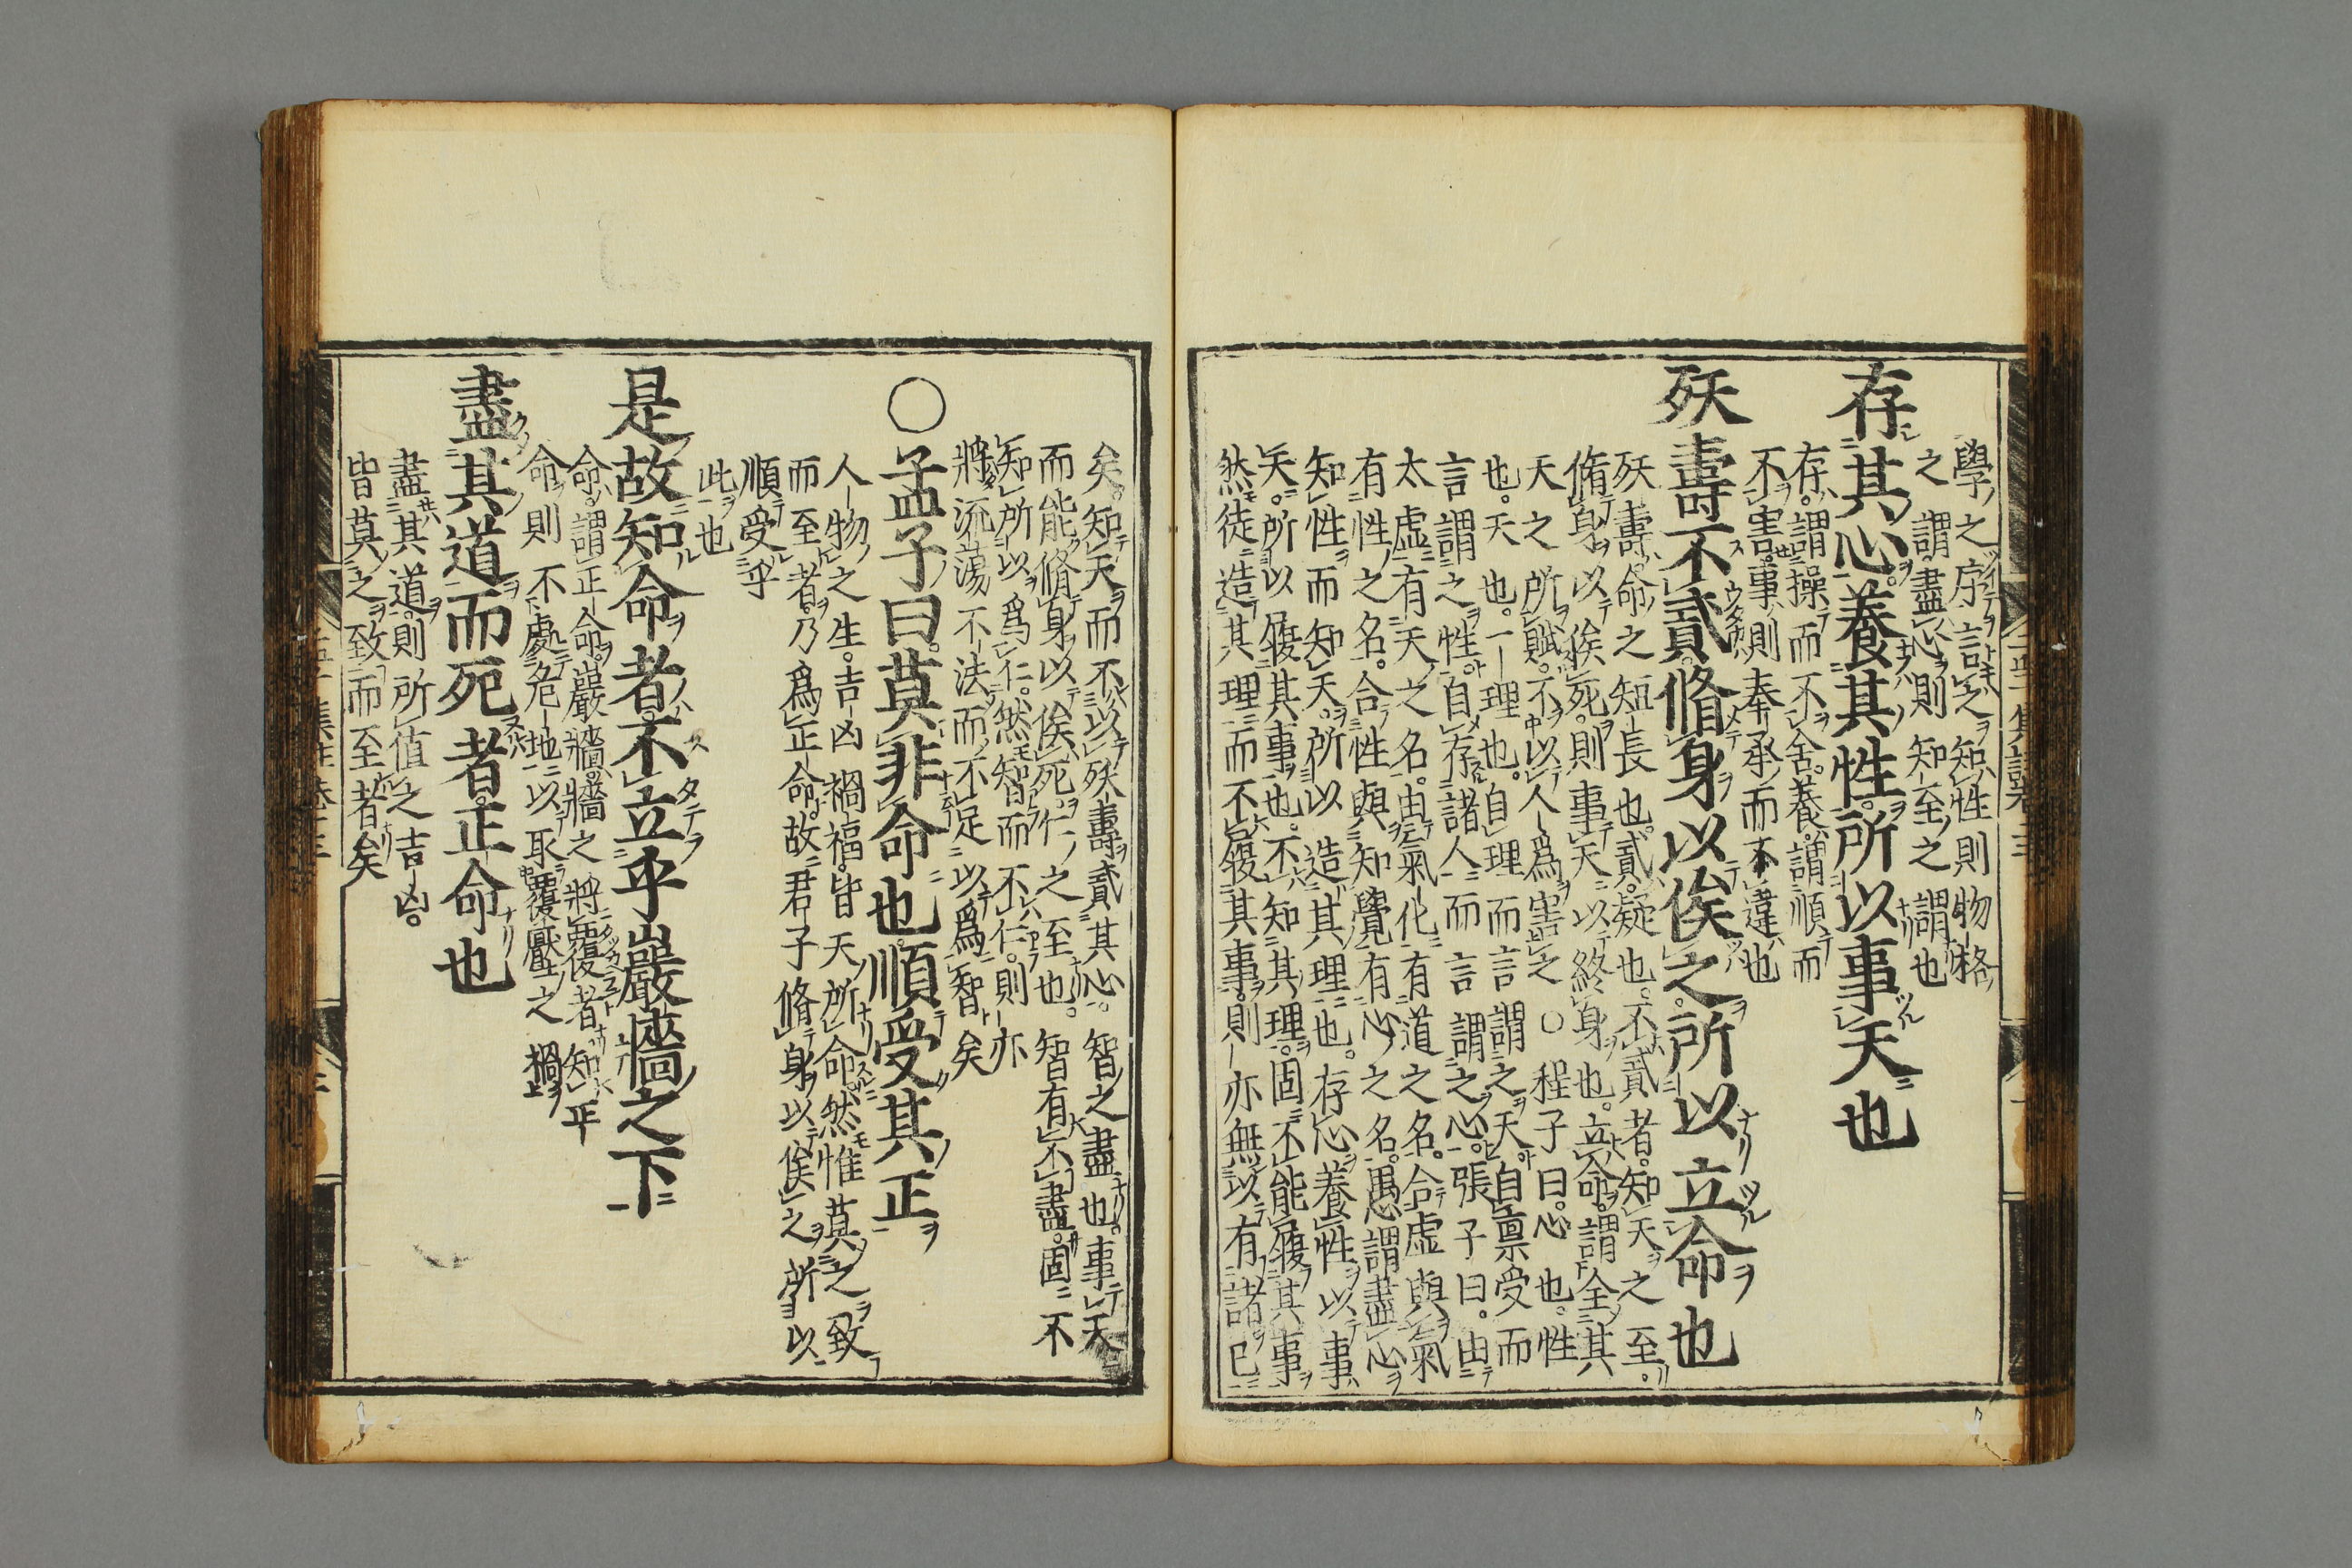 學之序言之知性則物格
之謂盡心則知至之謂也
存其心養其性所以事天也
存。謂操而不舍。養。謂順而
不害。事則奉承而不違也
殀壽不貳。脩身以俟之。所以立命也
殀壽。命之短長也。貳。疑也。不貳者。知天之至。
脩身以俟死。則事天以終身也。立命。謂全其
天之所賦。不以人爲害之○程子曰。心也。性
也。天也。一理也。自理而言謂之天。自禀受而
言謂之性。自存諸人而言謂之心。張子曰。由
太虚有天之名。由氣化有道之名。合虚與氣
有性之名。合性與知覺有心之名。愚謂盡心
知性而知天。所以造其理也。存心養性以事
天。所以履其事也。不知其理。固不能履其事
然徒造其理而不履其事。則亦無以有諸己
矣。知天而不以殀壽貳其心。智之盡也。事天
而能脩身以俟死。仁之至也。智有不盡。固不
知所以爲仁。然智而不仁。則亦
將流蕩不法而不足以爲智矣
○孟子曰。莫非命也順受其正
人物之生。吉凶禍福。皆天所命。然惟莫之致
而至者。乃爲正命。故君子脩身以俟之所以
順受乎
此也
是故知命者。不立乎巖牆之下
命。謂正命。巖牆。牆之將覆者。知正
命則不處危地以取覆壓之禍
盡其道而死者。正命也
盡其道。則所値之吉凶。
皆莫之致而至者矣